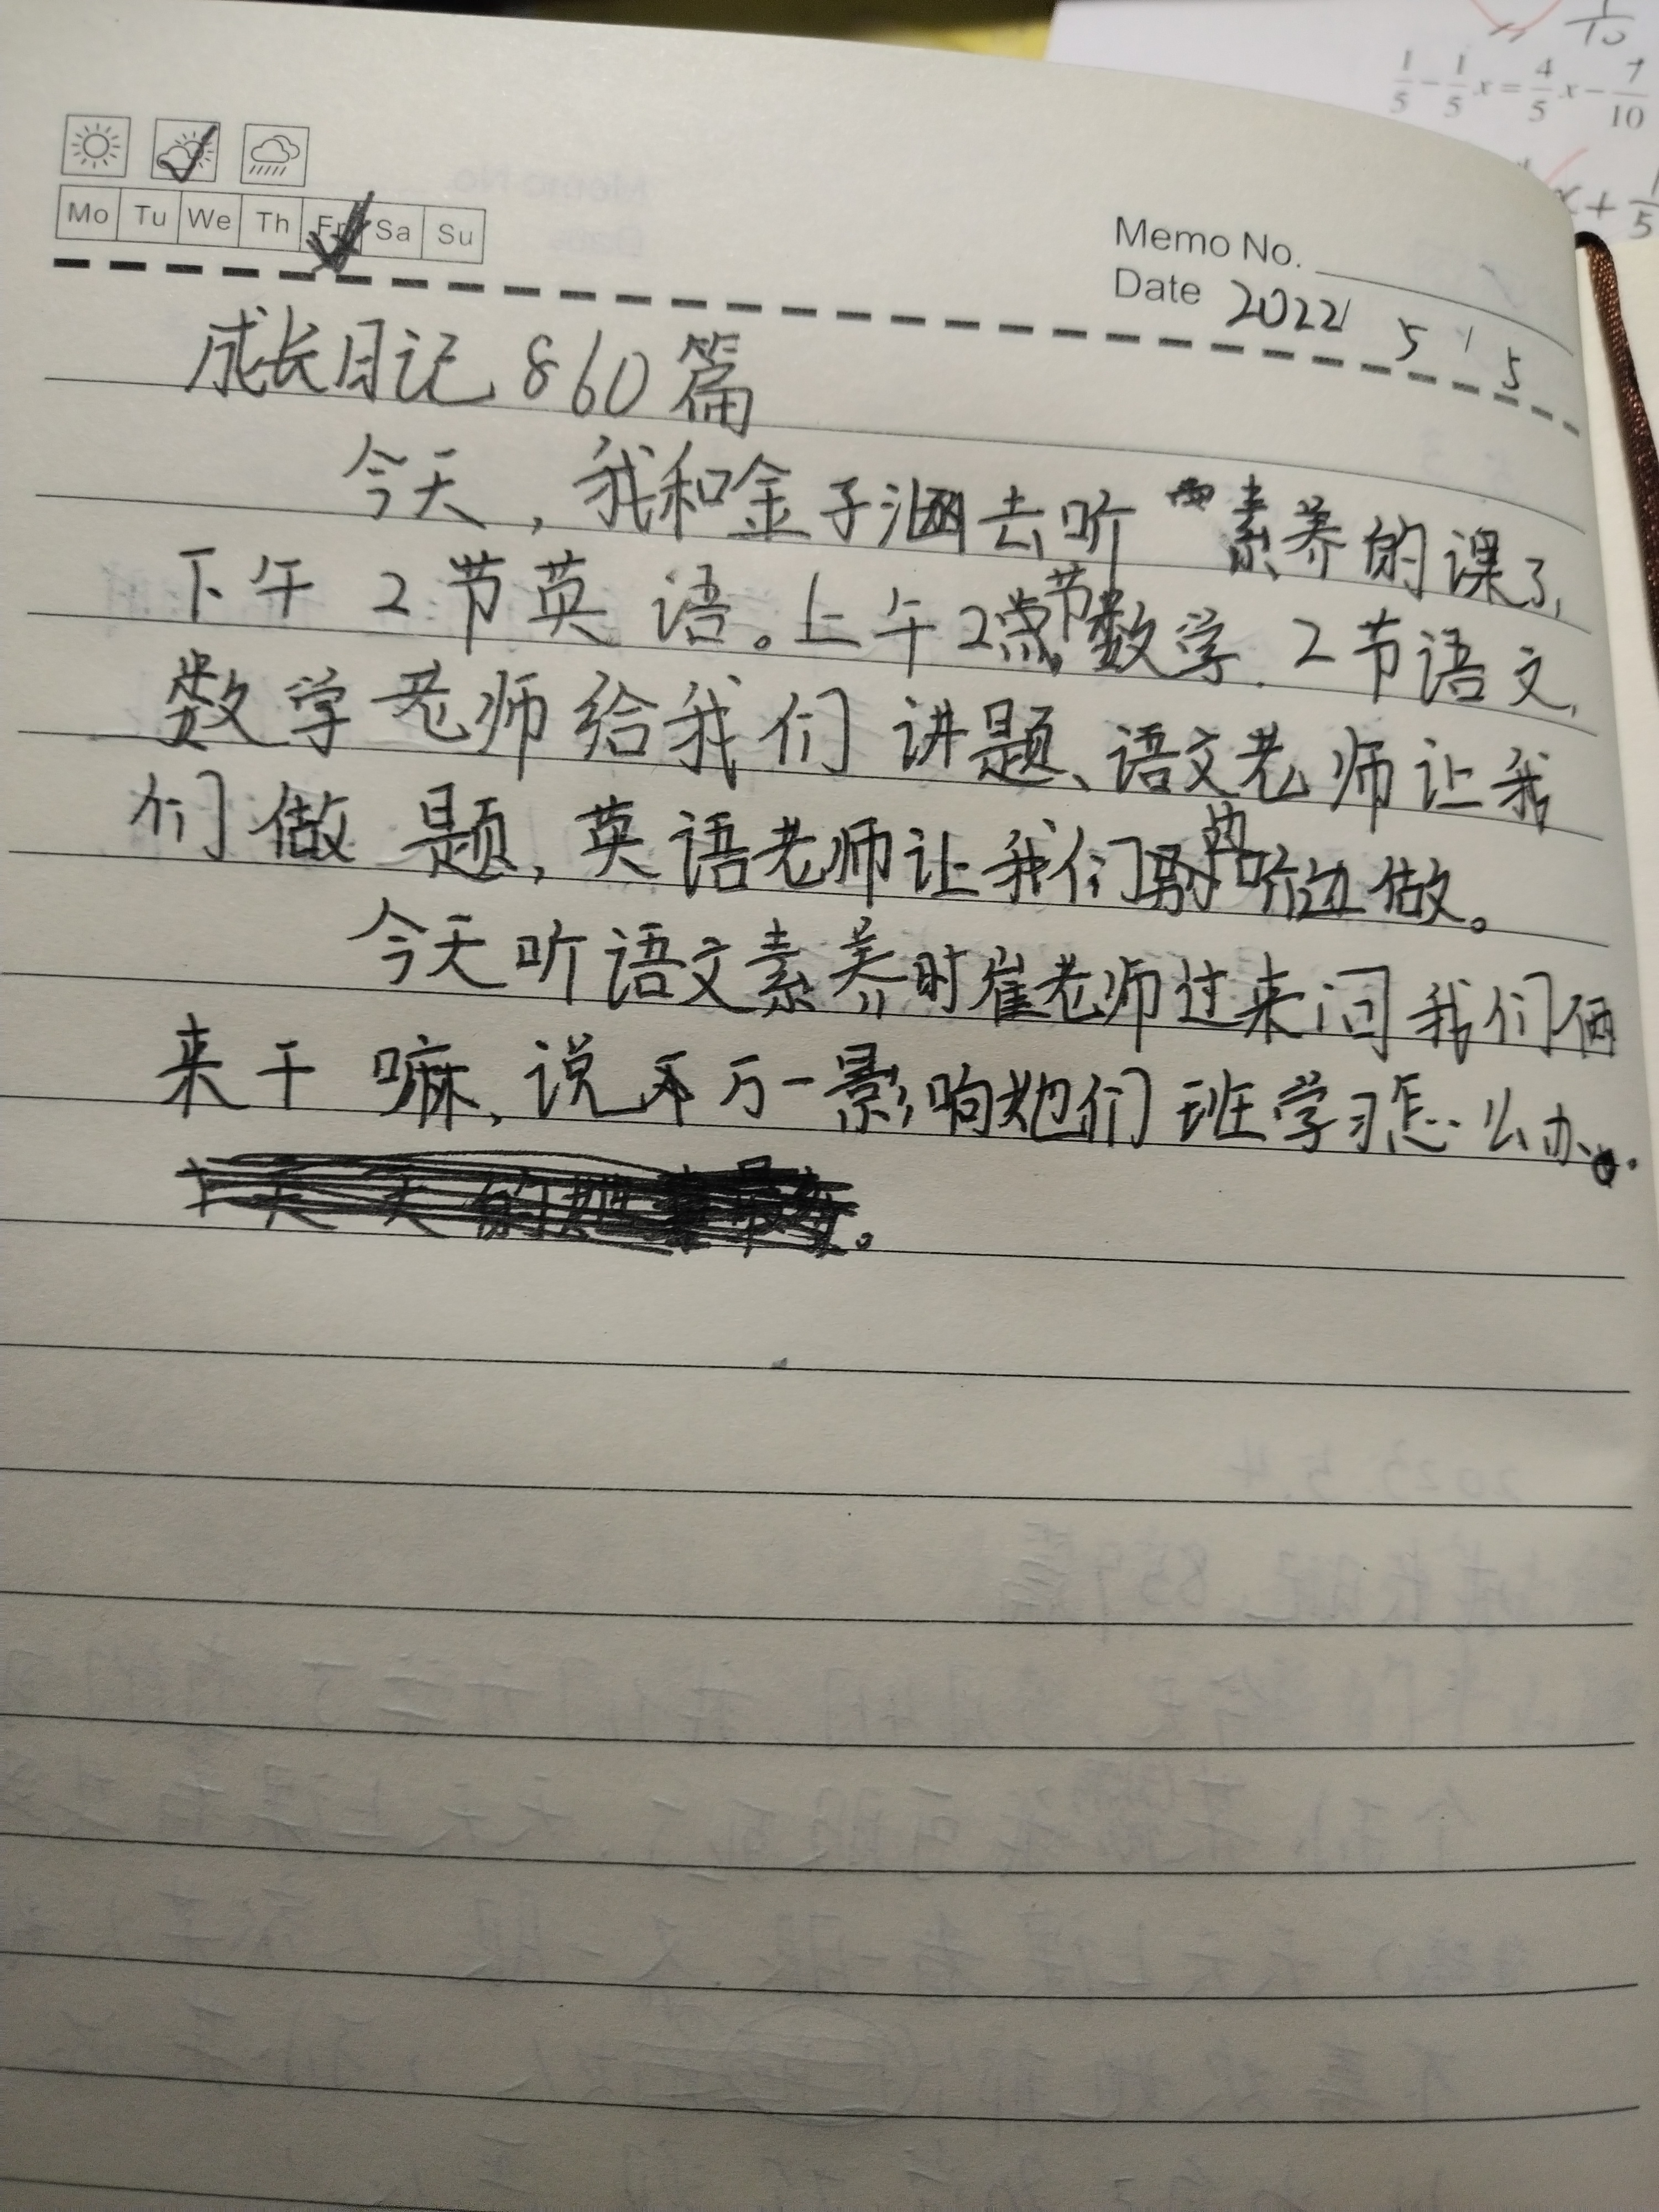 1/10
1/5 - 1/5 x = 4/5 x - 7/10
x + 1/5
Mo Tu We Th Fr Sa Su
Memo No.
Date 2022 / 5 / 5
成长日记 860篇
今天，我和金子涵去听素养的课了，
下午2节英语。上午2节数学．2节语文，
数学老师给我们讲题、语文老师让我
们做题，英语老师让我们边听边做。
今天听语文素养时崔老师过来问我们俩
来干嘛，说万一影响她们班学习怎么办。